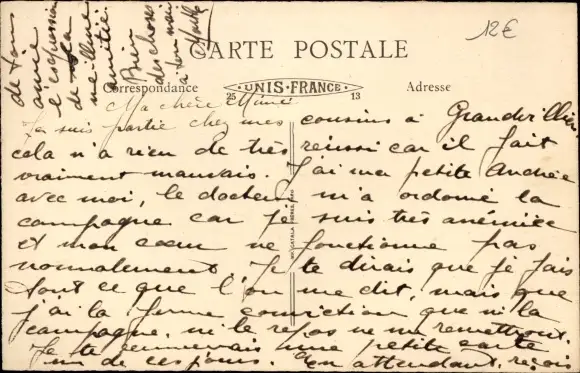 CARTE POSTALE
Correspondance
UNIS-FRANCE
25
13
Adresse
12€
Ma chère Mimi
Je suis partie chez mes cousins à Grandvilliers
cela n'a rien de très réussi car il fait
vraiment mauvais. J'ai ma petite Andrée
avec moi, le docteur m'a ordonné la
campagne car je suis très anémiée
et mon cœur ne fonctionne pas
normalement. Je te dirais que je fais
tout ce que l'on me dit, mais que
j'ai la ferme conviction que ni la
campagne, ni le repos ne me remettront.
Je te une petite carte
un de ces jours. En attendant, reçois
de ton
amie
l'expression
de sa
meilleure
amitié.
Bien
des choses
à ton mari
CATALA FRERES